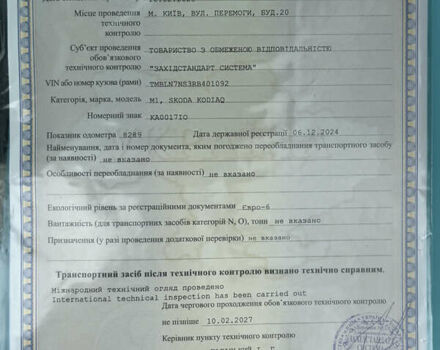 Місце проведення М. КИЇВ, ВУЛ. ПЕРЕМОГИ, БУД.20
технічного
контролю
Суб'єкт проведення ТОВАРИСТВО З ОБМЕЖЕНОЮ ВІДПОВІДАЛЬНІСТЮ
обов'язкового
технічного контролю "ЗАХІДСТАНДАРТ СИСТЕМА"
VIN або номер кузова (рами) TMBLN7NS3RB401092
Категорія, марка, модель M1, SKODA KODIAQ
Номерний знак КА0017ІО
Показник одометра 8289 Дата державної реєстрації 06.12.2024
Найменування, дата і номер документа, яким погоджено переобладнання транспортного засобу
(за наявності) не вказано
Особливості переобладнання (за наявності) не вказано
Екологічний рівень за реєстраційними документами Євро-6
Вантажність (для транспортних засобів категорій N, O), тонн не вказано
Призначення (у разі проведення додаткової перевірки) не вказано
Транспортний засіб після технічного контролю визнано технічно справним.
Міжнародний технічний огляд проведено
International technical inspection has been carried out
Дата чергового проходження обов'язкового технічного контролю
не пізніше 10.02.2027
Керівник пункту технічного контролю